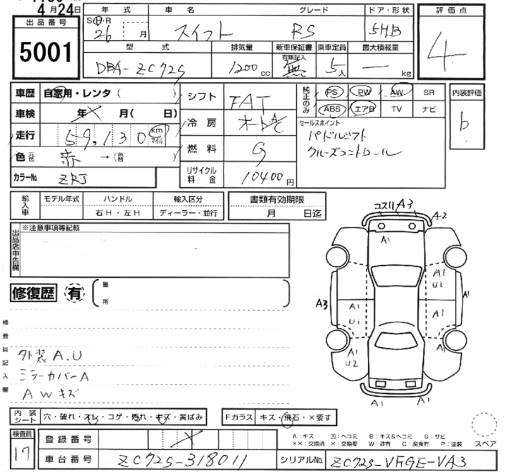 4月24日
出品番号 年式 車名 グレード ドア・形状 評価点
5001 S・H 26 年 月 スイフト RS 5HB 4
型式 排気量 新車保証書 有無記入 乗車定員 最大積載量
DBA-ZC72S 1200cc 無 5人 — kg
車歴 自家用・レンタ( ) シフト FAT 純正のみ PS PW AW SR 内装評価
車検 年 月( 日) ABS エアB TV ナビ b
冷房 オートAC セールスポイント
走行 59,130 km パドルシフト
色 赤 → 燃料 G クルーズコントロール
カラーNo. ZRJ リサイクル料金 10400円
輸入車 モデル年式 ハンドル 輸入区分 書類有効期限
右H・左H ディーラー・並行 月 日迄
出品店申告欄 ※注意事項等記載
修復歴 有 箇所
コスリ A3 A-2
A1
A3 A1 U2 A1 U2 A1
A1 A1
A1
検査員記入欄
外装A.U
ミラーカバーA
AWキズ
内装シート 穴・破れ・スレ・コゲ・汚れ・キズ・黄ばみ Fガラス キズ・飛石・×要す
A:キズ
スペア
検査員 17 登録番号
車台番号 ZC72S-318011 シリアルNo. ZC72S-VFGE-VA3